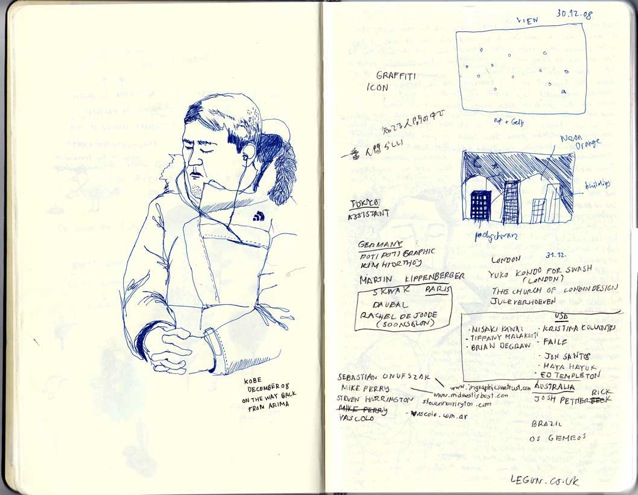 KOBE
DECEMBER 08
ON THE WAY BACK
FROM ARIMA
30.12.08
GRAFFITI
ICON
Neon
Orange
buildings
TOKYO
ASSISTANT
GERMANY
POTI POTI GRAPHIC
KIM HIORTHOY
MARTIN KIPPENBERGER
SKWAK PARIS
DAUBAL
RACHEL DE JOODE
LONDON 31.12.
YUKO KONDO FOR SWASH
(LONDON)
THE CHURCH OF LONDON DESIGN
JULIE VERHOEVEN
USA
· MISAKI KAWAI
· TIFFANY MALAKOOTI
· BRIAN DEGRAW
· KRISTINA COLLANTES
· FAILE
· JEN SANTOS
· MAYA HAYUK
· ED TEMPLETON
SEBASTIAN ONUFSZAK
MIKE PERRY
STEVEN HARRINGTON
MIKE PERRY
VASCOLO
www.midwestisbest.com
stevenharrington.com
· vascolo.com.ar
AUSTRALIA
JOSH PETHERICK
BRAZIL
OS GEMEOS
LEGUN.CO.UK